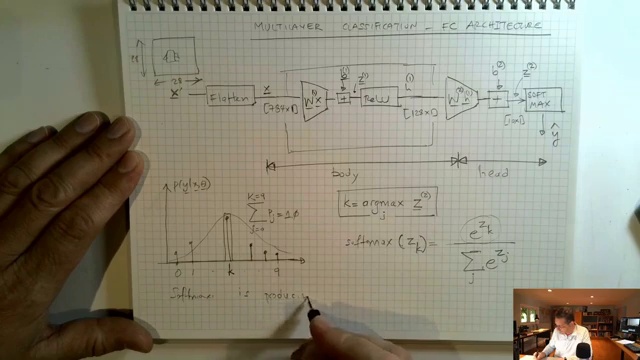 MULTILAYER CLASSIFICATION - FC ARCHITECTURE
28
28
X'
Flatten
x
[784x1]
W⁽¹⁾x
b⁽¹⁾
+
z⁽¹⁾
ReLU
h⁽¹⁾
[128x1]
W⁽²⁾h⁽¹⁾
b⁽²⁾
+
z⁽²⁾
[10x1]
SOFT
MAX
ŷ
body
head
P(y|x,θ)
K=9
∑ ŷj = 1.0
j=0
0 1 k 9
k = argmax z⁽²⁾
j
softmax (zk) = e^zk / ∑j e^zj
Softmax is produci